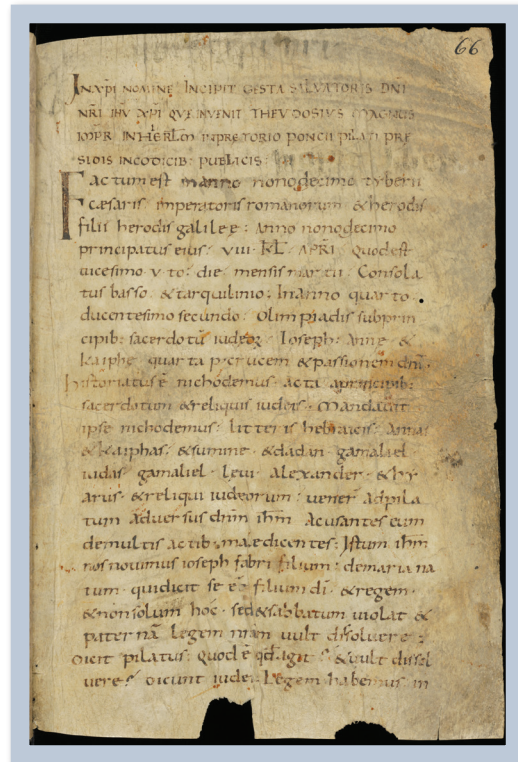 66
IN XPI NOMINE INCIPIT GESTA SALVATORIS DNI
NRI IHU XPI QUE INVENIT THEUDOSIUS MAGNUS
IMPR IN HIERLM IN PRETORIO PONCII PILATI PRE
SIDIS IN CODICIB: PUBLICIS:
Factum est in anno nonodecimo tyberii
cæsaris imperatoris romanorum & herodis
filii herodis galileȩ: Anno nonodecimo
principatus eius. VIII. KL. APRI. quod est
uicesimo v to: die mensis martii. Consola
tus basso. & tarquilinio: In anno quarto
ducentesimo secundo. Olimpiadis subprin
cipib: sacerdotū iudeoꝝ. Ioseph: Anne &
kaiphe. quarta p̄ crucem & passionem dn̄i.
historiatus ē nichodemus. acta a principib:
sacerdotum & reliquis iudeis. Mandauit
ipse nichodemus: litteris hebraicis. Annas
& kaiphas. & summe. & dadan. gamaliel
iudas gamaliel. leui. alexander. & hy
arus. & reliqui iudeorum: uener̄ ad pila
tum aduersus dn̄m ihm̄ acusantes eum
de multis actib: maledicentes: Istum ihm̄
nos nouimus ioseph fabri filium: de maria na
tum. qui dicit se eē filium dī. & regem.
& non solum hoc. sed & sabbatum uiolat &
paternā legem nr̄am uult dissoluere:
dicit pilatus: quod ē qd̄ agit? & uult dissol
uere? dicunt iudei: Legem habemus in